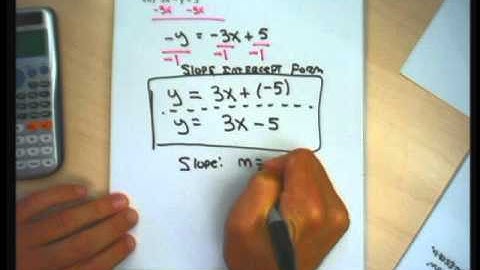 -3x -3x
-y = -3x + 5
-1 -1 -1
Slope Intercept Form
y = 3x + (-5)
y = 3x - 5
Slope: m =